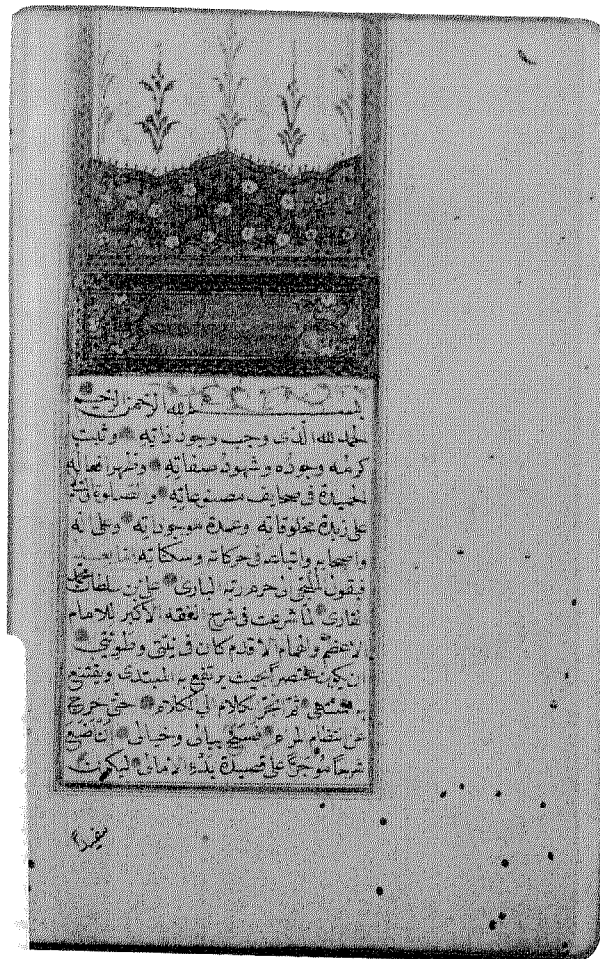 بسم الله الرحمن الرحيم
الحمد لله الذي وجب وجود ذاته وثبت
كرمه وجوده وشهود صفاته وظهر افعاله
الحميدة في صحايف مصنوعاته والصلوة
على زبدة مخلوقاته وعمدة موجوداته وعلى اله
واصحابه واتباعه في حركاته وسكناته اما بعد
فيقول الملتجي الى حرم ربه الباري علي بن سلطان محمد
القاري لما شرعت في شرح الفقه الاكبر للامام
الاعظم والهمام الاقدم كان في نيتي وطويتي
ان يكون مختصرا بحيث ينتفع به المبتدى ويقتنع
به المنتهى ثم انجر الكلام الى الكلام حتى خرج
عن نظام المرام فسنح ببالي وخيالي ان اضع
شرحا موجزا على قصيدة بدء الامالي ليكون